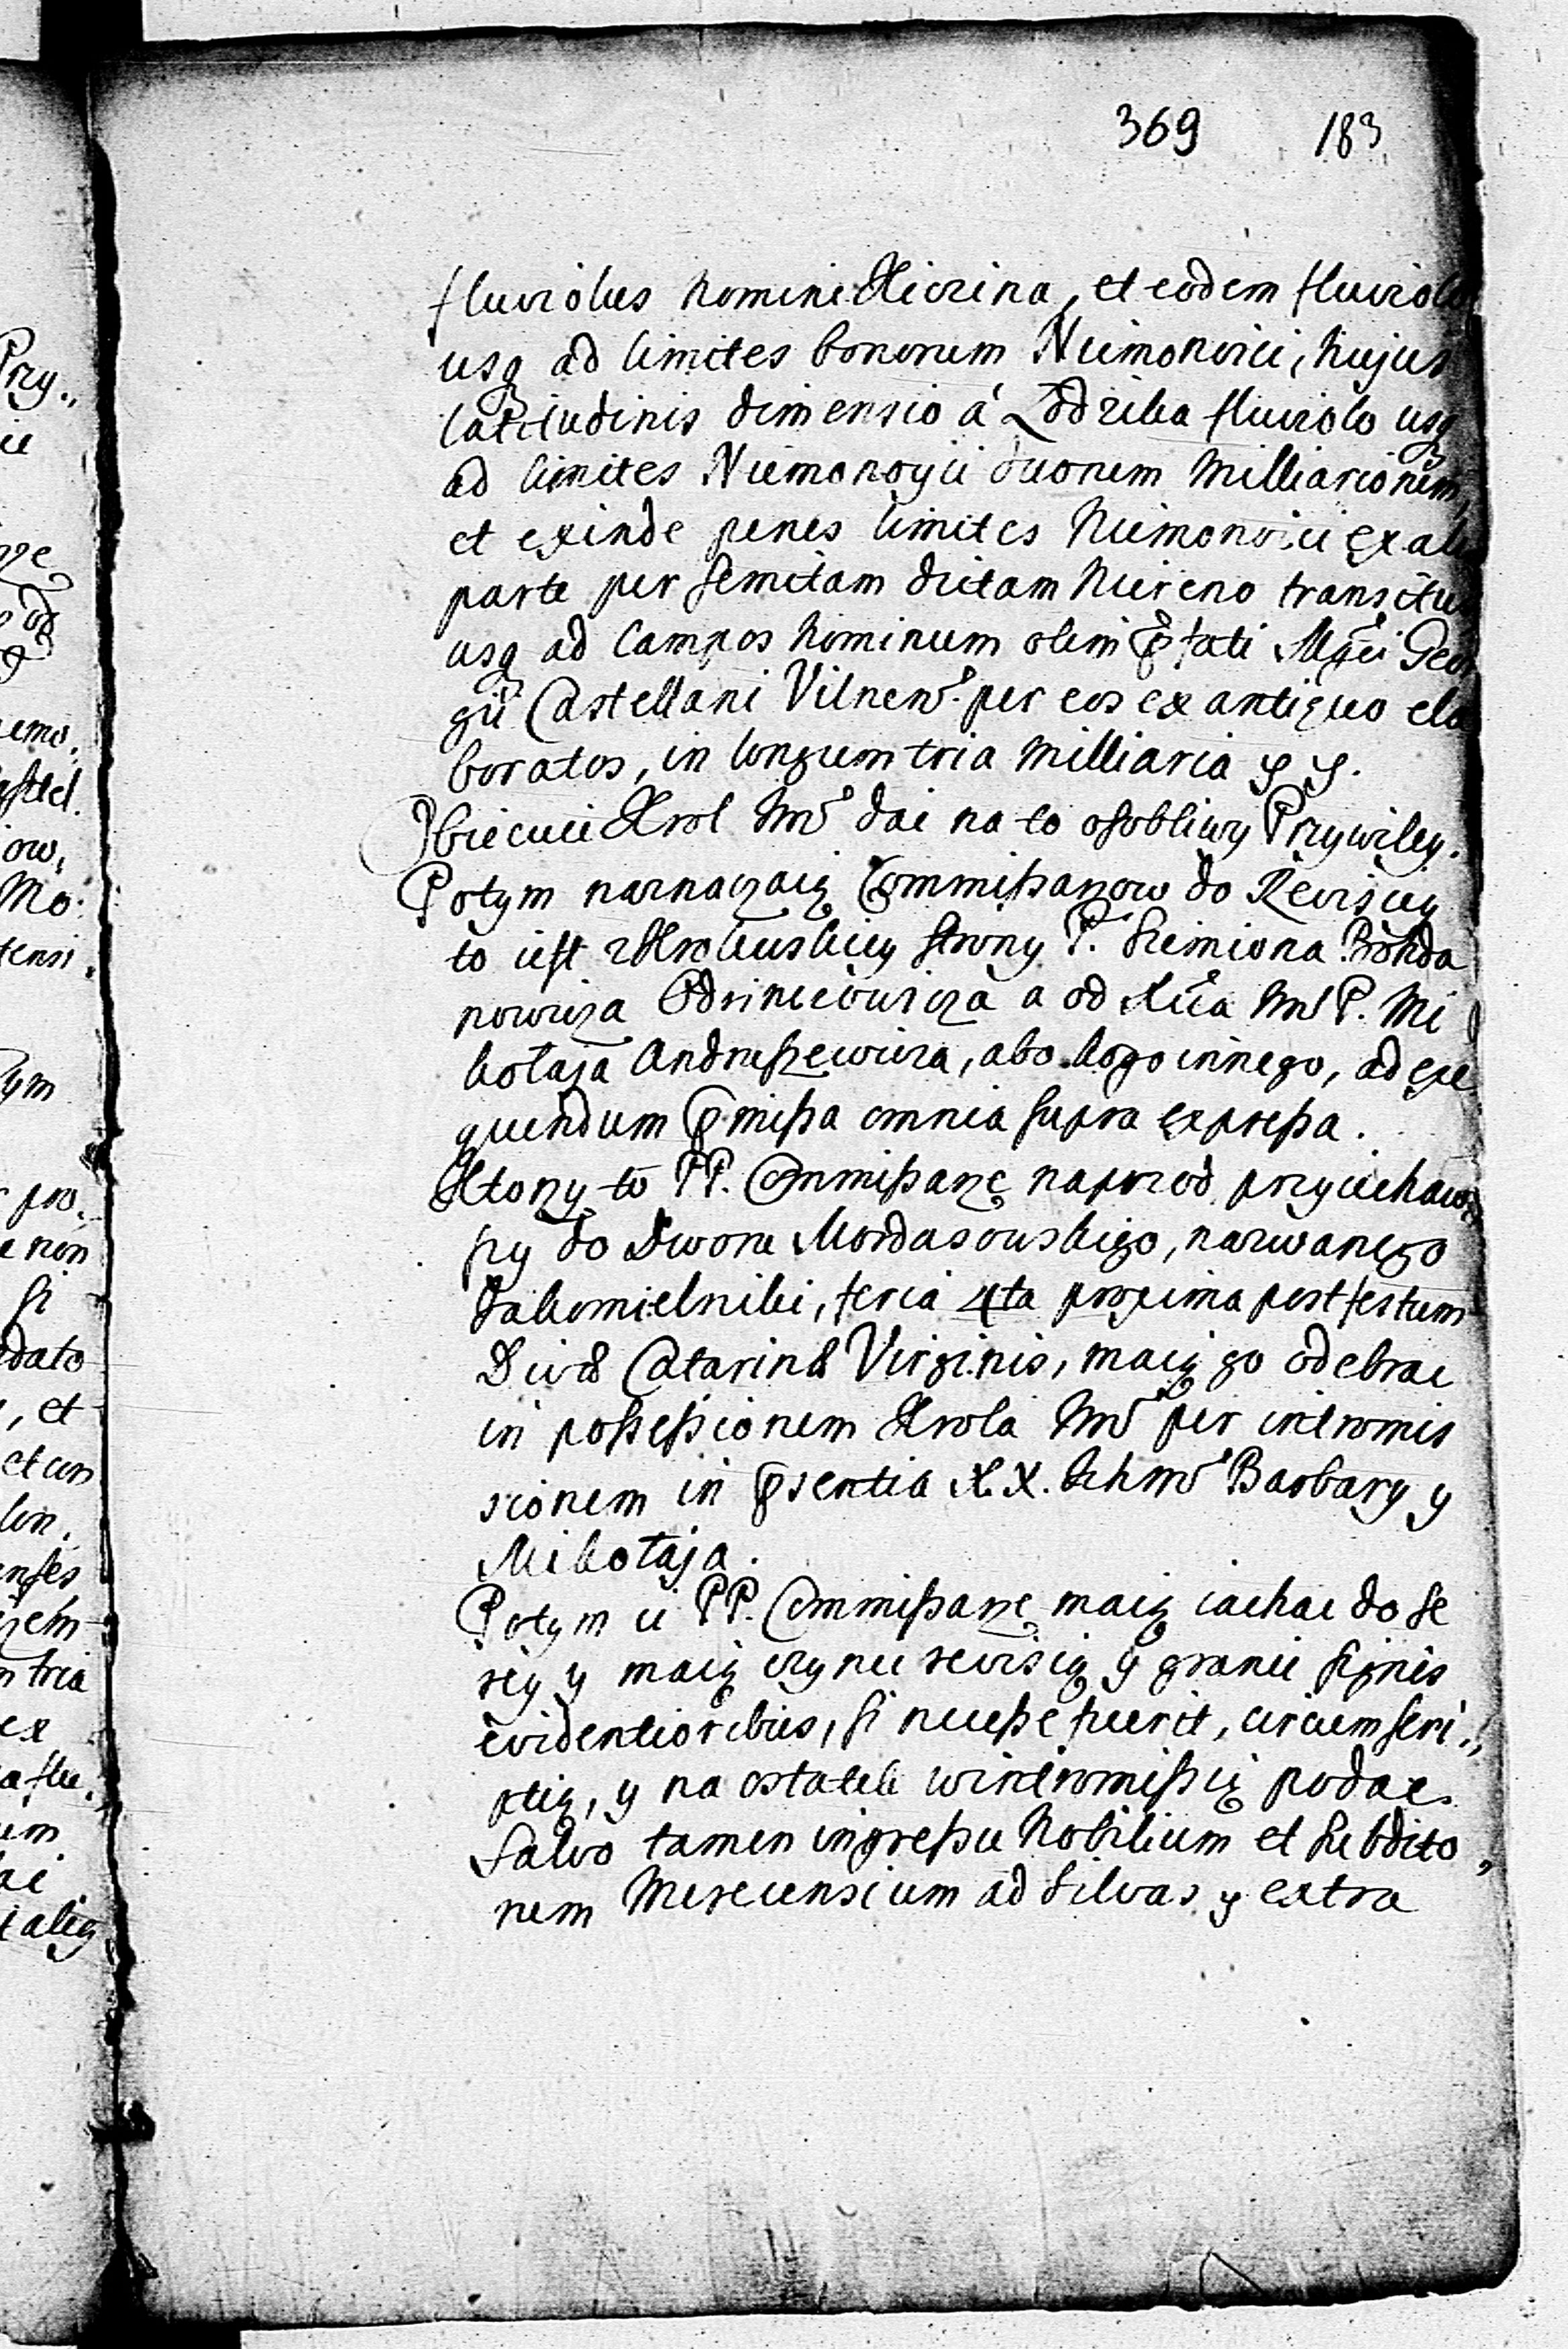 369 183
fluviolus nomine Kierzina, et eodem fluviolo
usq ad limites bonorum Niemonoici, hujus
latitudinis dimensio á Lodziba fluviolo usq
ad limites Niemonoyci duorum milliariorum,
et exinde penes limites Niemonoici ex alia
parte per semitam dictam Niereno transitus
usq ad campos hominum olim p̃fati Mgci Geor
gii Castellani Vilnens. per eos ex antiquo ela
boratos, in longum tria milliaria
Obiecuie Krol Im̃ dac na to osobliwy Przywiley.
Potym naznaczaią Commißarzow do Rewisiey
to iest z Krolewskiey strony P. Siemiona Bohda
nowicza Odyncewicza a od Xcia Im̃ P. Mi
kołaja Andrußewicza, abo kogo innego, ad exe
quendum p̃mißa omnia supra expreßa.
Ktorzy to PP. Commißarze naprzod przyiechaw
ßy do Dworu Mordasowskiego, nazwanego
Sakomielniki, feria 4ta proxima post festum
Divæ Catarinæ Virginis, maią go odebrac
in poßeßionem Krola Im̃ per intromis
sionem in p̃sentia X.X. Ichm̃ Barbary y
Mikołaja.
Potym ci PP. Commißarze maią iachac do Se
rey y maią czynic rewisią y granic signis
evidentioribus, si neceße fuerit, circumscri„
ptią, y na ostatek w intromißią podac.
Salvo tamen ingreßu Nobilium et Subdito„
rum Merecensium ad silvas y extra
Przy„